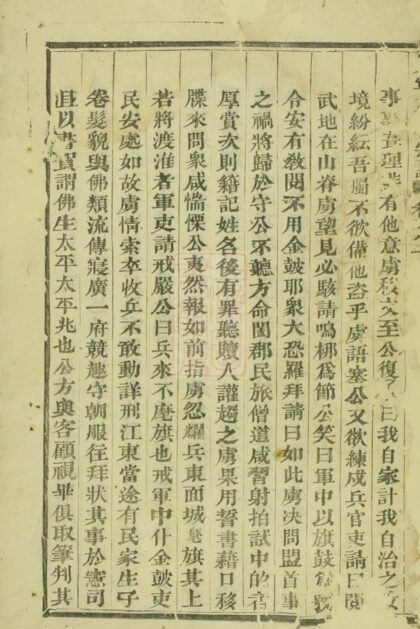 事 理 有他意虜移文至公復 曰我自家計我自治之
境紛紜吾屬不欲備他盜乎虜語塞公又欲練戍兵官吏請曰閱
武地在山脊虜望見必駭請鳴梆爲節公笑曰軍中以旗鼓
令安有教閱不用金鼓耶衆大恐羅拜請曰如此虜決問盟首事
之禍將歸於守公不聽方命闔郡民旅僧道咸習射拍試中的者
厚賞次則籍記姓名後有罪聽贖人讙趨之虜果用誓書藉口移
牒來問衆咸惴慄公夷然報如前指虜忽耀兵東面城 旗其上
若將渡淮者軍吏請戒嚴公曰兵來不麾旗也戒軍中仆金鼓吏
民安處如故虜情索卒收兵不敢動詳刑江東當塗有民家生子
卷髮貌與佛類流傳寖廣一府競趣守朝服往拜狀其事於憲司
且以書賀謂佛生太平太平兆也公方與客顧視畢俱取筆判其